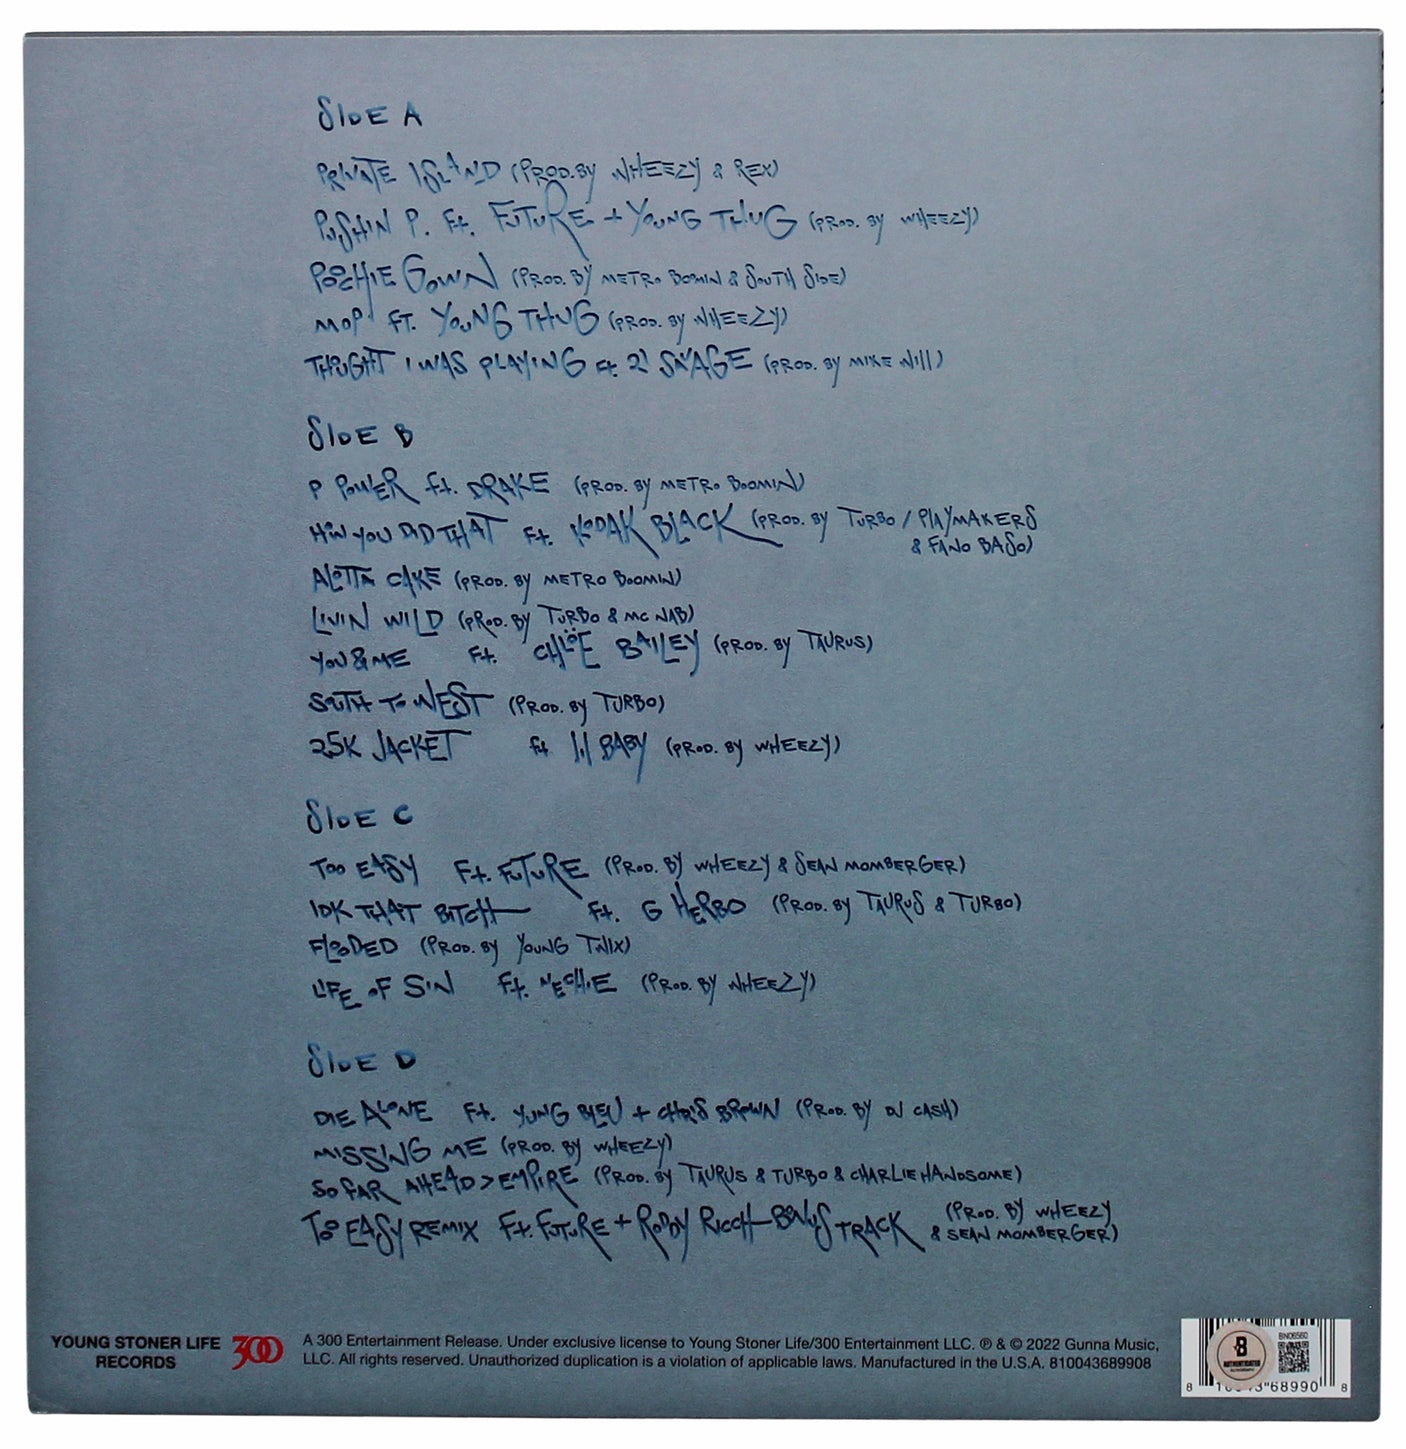 SIDE A
PRIVATE ISLAND (PROD. BY WHEEZY & REX)
PUSHIN P. Ft. FUTURE + YOUNG THUG (PROD. BY WHEEZY)
POOCHIE GOWN (PROD. BY METRO BOMIN & SOUTH SIDE)
MOP FT. YOUNG THUG (PROD. BY WHEEZY)
THOUGHT I WAS PLAYING Ft. 21 SAVAGE (PROD. BY MIKE WILL)
SIDE B
P POWER Ft. DRAKE (PROD. BY METRO BOOMIN)
HOW YOU DID THAT Ft. KODAK BLACK (PROD. BY TURBO / PLAYMAKERS
& FANO BASO)
ALOTTA CAKE (PROD. BY METRO BOOMIN)
LIVIN WILD (PROD. BY TURBO & MC NAB)
YOU & ME Ft. CHLÖE BAILEY (PROD. BY TAURUS)
SOUTH TO WEST (PROD. BY TURBO)
25K JACKET Ft LIL BABY (PROD. BY WHEEZY)
SIDE C
TOO EASY Ft. FUTURE (PROD. BY WHEEZY & SEAN MOMBERGER)
IDK THAT BITCH Ft. G HERBO (PROD. BY TAURUS & TURBO)
FLOODED (PROD. BY YOUNG TWIX)
LIFE OF SIN Ft. NECHIE (PROD. BY WHEEZY)
SIDE D
DIE ALONE Ft. YUNG BLEU + CHRIS BROWN (PROD. BY DJ CASH)
MISSING ME (PROD. BY WHEEZY)
SO FAR AHEAD > EMPIRE (PROD. BY TAURUS & TURBO & CHARLIE HANDSOME)
TOO EASY REMIX Ft. FUTURE + RODDY RICCH - BONUS TRACK (PROD. BY WHEEZY
& SEAN MOMBERGER)
YOUNG STONER LIFE
RECORDS
300
A 300 Entertainment Release. Under exclusive license to Young Stoner Life/300 Entertainment LLC. ℗ & © 2022 Gunna Music,
LLC. All rights reserved. Unauthorized duplication is a violation of applicable laws. Manufactured in the U.S.A. 810043689908
B
AUTHENTICATED
BN06560
68990 8